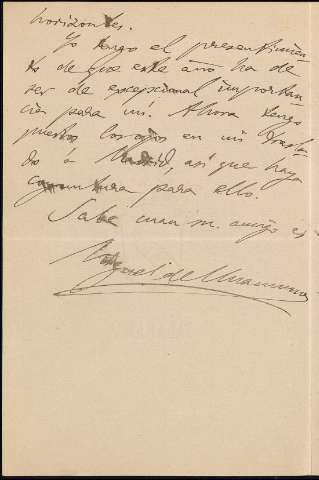 horizontes.
Yo tengo el presentimien
to de que este año ha de
ser de excepcional importan
cia para mí. Ahora tengo
puestos los ojos en mi trasla
do à Madrid, así que haya
coyuntura para ello.
Sabe cuan su amigo es
Miguel de Unamuno